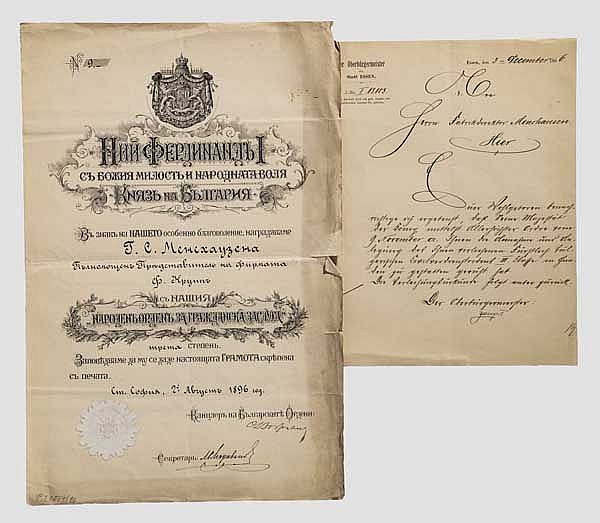 № 9
НИЙ ФЕРДИНАНДЪ I
СЪ БОЖИЯ МИЛОСТЬ И НАРОДНАТА ВОЛЯ
КНЯЗЬ НА БЪЛГАРИЯ
Въ знакъ на НАШЕТО особенно благоволение, награждаваме
Г. С. Менсхаузена
Пълномощенъ Представитель на фирмата
Ф. Крупъ
СЪ НАШИЯ
НАРОДЕНЪ ОРДЕНЪ ЗА ГРАЖДАНСКА ЗАСЛУГА
трета степень.
Заповѣдваме да му се даде настоящата ГРАМОТА скрѣпена
съ печата.
Ст. София, 2й Августъ 1896 год.
Канцлеръ на Българскитѣ Ордени:
Секретарь:
Der Oberbürgermeister
der
Stadt ESSEN.
Essen, den 3 December 6
Herrn Fabrikdirektor Menshausen
Hier
Euer Wohlgeboren benach-
richtige ich ergebenst, daß Seine Majestät
der König mittelst Allerhöchster Order vom
9 November Ihnen die Annahme und An-
legung des Ihnen verliehenen Fürstlich bul-
garischen Civilverdienstordens III Klasse in Gna-
den zu gestatten geruht hat
Die Verleihungsurkunde folgt anbei zurück.
Der Oberbürgermeister: